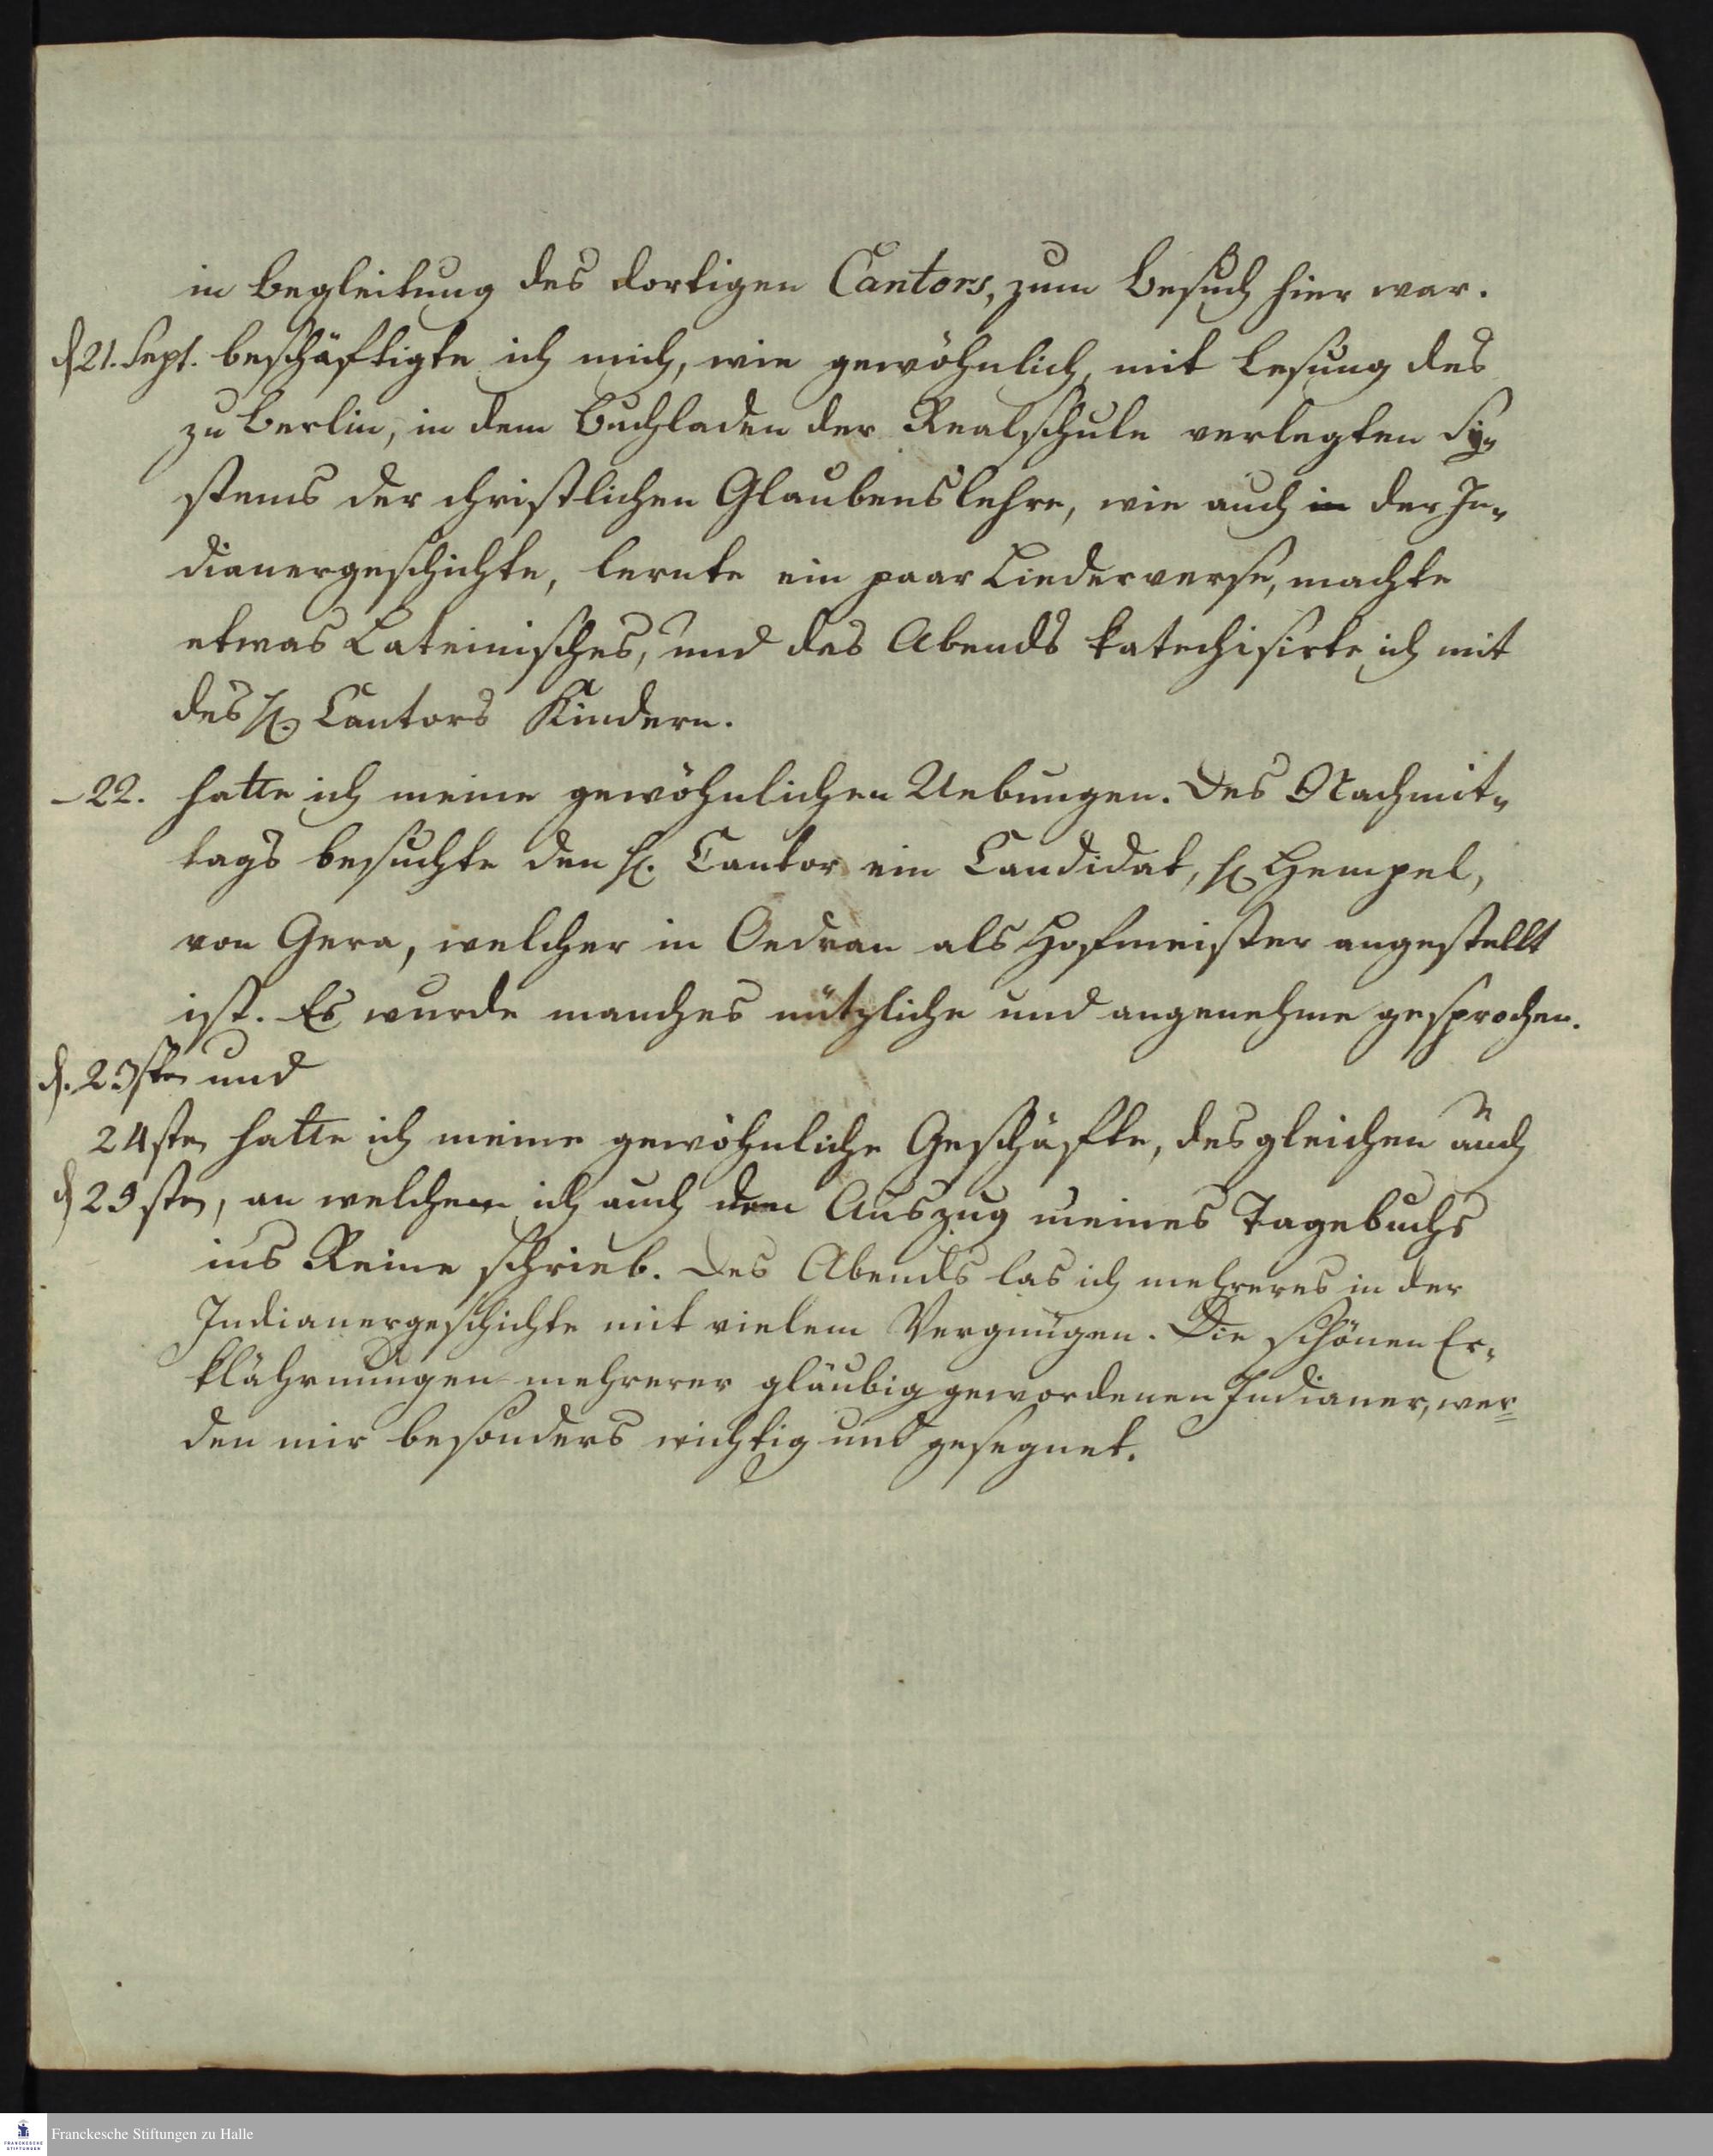 in Begleitung des dortigen Cantors, zum Besuch hier war.
d 21. Sept. beschäftigte ich mich, wie gewöhnlich, mit Lesung des
zu Berlin, in dem Buchladen der Realschule verlegten Sy-
stems der christlichen Glaubenslehre, wie auch in der In-
dianergeschichte, lernte ein paar Liederverse, machte
etwas Lateinisches, und des Abends katechisirte ich mit
des H. Cantors Kindern.
- 22. hatte ich meine gewöhnlichen Uebungen. Des Nachmit-
tags besuchte den H. Cantor ein Candidat, H Hempel,
von Gera, welcher in Oedran als Hofmeister angestellt
ist. Es wurde manches nützliche und angenehme gesprochen.
d. 23sten und
24sten hatte ich meine gewöhnliche Geschäfte, desgleichen auch
d 25sten, an welchem ich auch den Auszug meines Tagebuchs
ins Reine schrieb. Des Abends las ich mehreres in der
Indianergeschichte mit vielem Vergnügen. Die schönen Er-
klährungen mehrerer gläubig gewordenen Indianer, wer-
den mir besonders wichtig und gesegnet.
FRANCKESCHE
STIFTUNGEN
Franckesche Stiftungen zu Halle